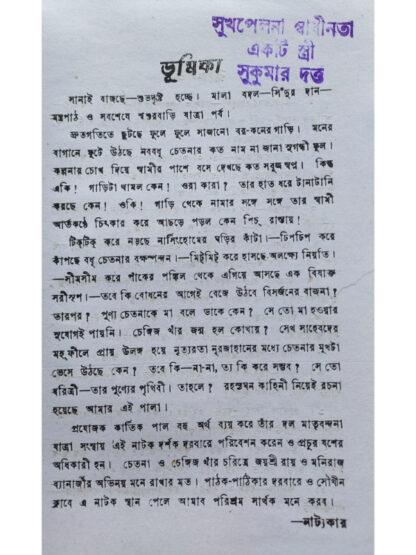 সুখপেলনা স্বাধীনতা
একটি স্ত্রী
সুকুমার দত্ত
ভূমিকা
সানাই বাজছে—শুভদৃষ্টি হচ্ছে। মালা বদল—সিঁদুর দান—
মন্ত্রপাঠ ও সবশেষে শ্বশুরবাড়ি যাত্রা পর্ব।
দ্রুতগতিতে ছুটছে ফুলে ফুলে সাজানো বর-কনের গাড়ি। মনের
বাগানে ফুটে উঠছে নববধূ চেতনার কত নাম না জানা সুগন্ধী ফুল।
কল্পনার চোখ দিয়ে স্বামীর পাশে বসে দেখছে কত সবুজ স্বপ্ন। কিন্তু
একি! গাড়িটা থামল কেন! ওরা কারা? তার হাত ধরে টানাটানি
করছে কেন! ওকি! গাড়ি থেকে নামার সঙ্গে সঙ্গে তার স্বামী
আর্তকণ্ঠে চিৎকার করে আছড়ে পড়ল কেন পিচ্ রাস্তায়!
টিক্‌টিক্ করে নড়ছে নার্সিংহোমের ঘড়ির কাঁটা।—ঢিপঢিপ করে
কাঁপছে বধূ চেতনার বক্ষস্পন্দন।—মিটুমিটু করে হাসছে অলক্ষ্যে নিয়তি।
—সীমসীম করে পাঁকের পঙ্কিল থেকে এগিয়ে আসছে এক বিষাক্ত
সরীসৃপ।—তবে কি বোধনের আগেই বেজে উঠবে বিসর্জনের বাজনা?
তারপর? পুণ্য চেতনাকে মা বলে ডাকে কেন? সে তো মা হওয়ার
সুযোগই পায়নি। চেঙ্গিজ খাঁর জন্ম হল কোথায়? সেখ সাহেবদের
মহ্‌ফীলে প্রায় উলঙ্গ হয়ে নৃত্যরতা নূরজাহানের মধ্যে চেতনার মুখটা
ভেসে উঠছে কেন? তবে কি—না-না, তা কি করে সম্ভব? সে তো
ধরিত্রী—তার পুণ্যের পৃথিবী। তাহলে? রহস্যঘন কাহিনী নিয়েই রচনা
হয়েছে আমার এই পালা।
প্রযোজক কার্তিক পাল বহু অর্থ ব্যয় করে তাঁর দল মাতৃবন্দনা
যাত্রা সংস্থায় এই নাটক দর্শক দরবারে পরিবেশন করেন ও প্রচুর যশের
অধিকারী হন। চেতনা ও চেঙ্গিজ খাঁর চরিত্রে জয়শ্রী রায় ও মনিরাজ
ব্যানার্জীর অভিনয় মনে রাখার মত। পাঠক-পাঠিকার দরবারে ও সৌখীন
ক্লাবে এ নাটক স্থান পেলে আমার পরিশ্রম সার্থক মনে করব।
—নাট্যকার